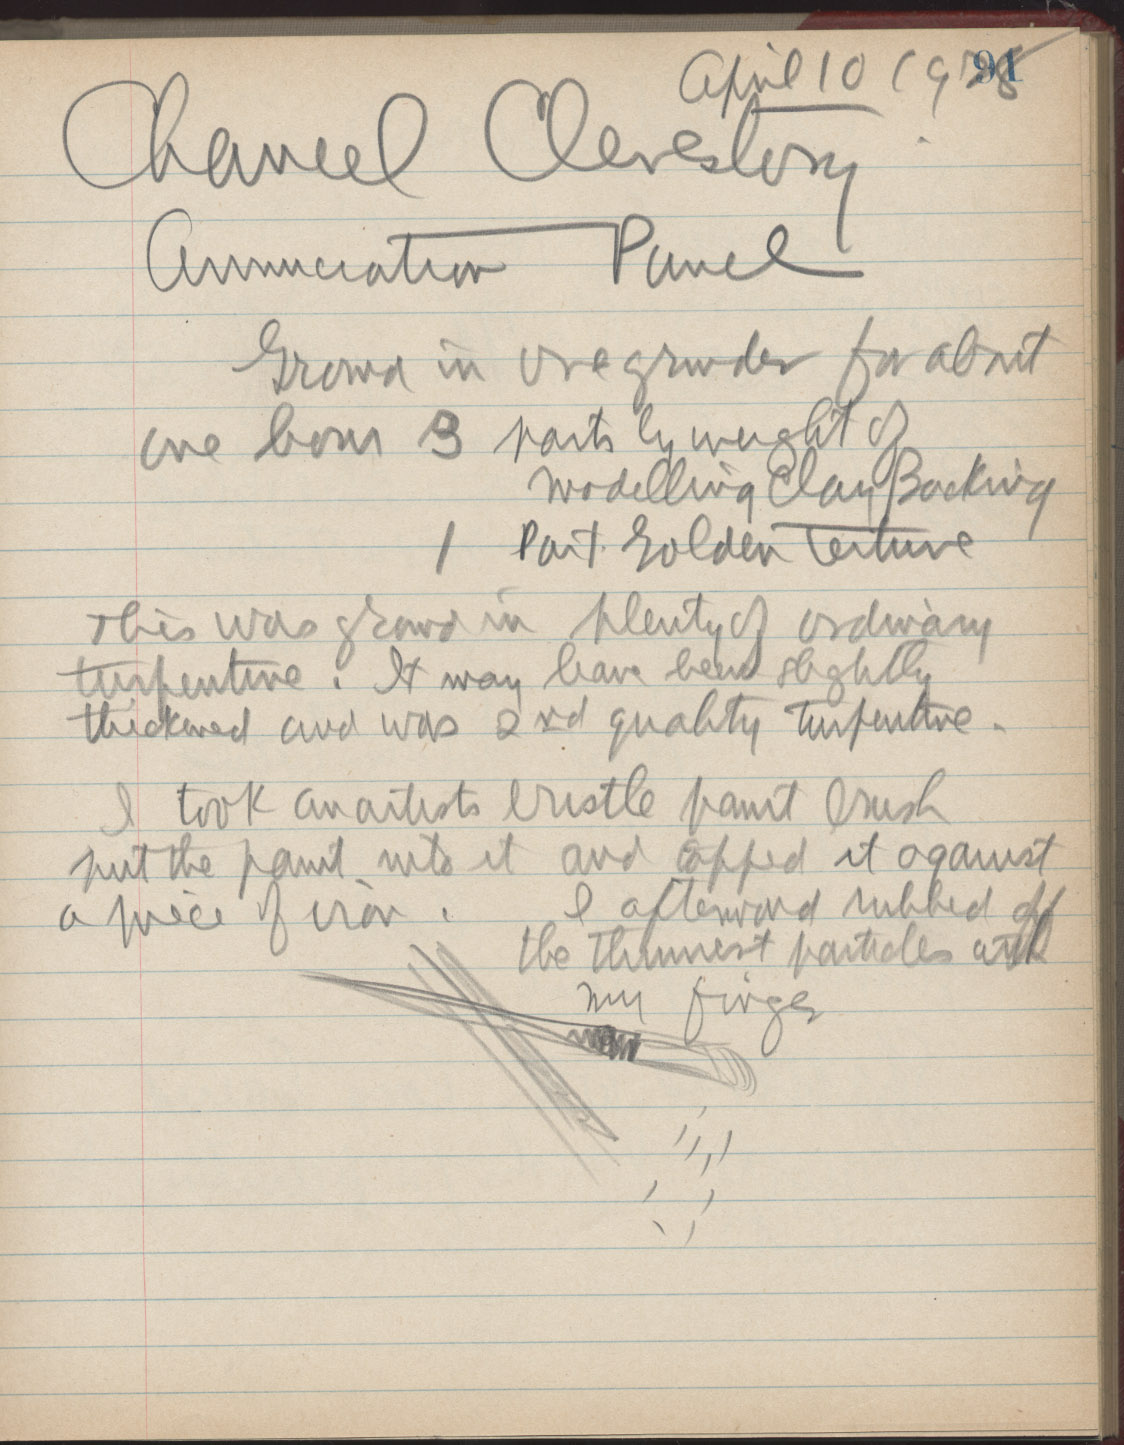 91
April 10 1928
Chancel Clerestory
Annunciation Panel
Ground in one grinder for about
one hour 3 parts by weight of
Modelling Clay Backing
1 Part Golden Texture
This was ground in plenty of ordinary
turpentine. It may have been slightly
thickened and was 2nd quality turpentine.
I took an artists bristle paint brush
put the paint into it and tapped it against
a piece of iron. I afterward rubbed off
the thinnest particles with
my finger